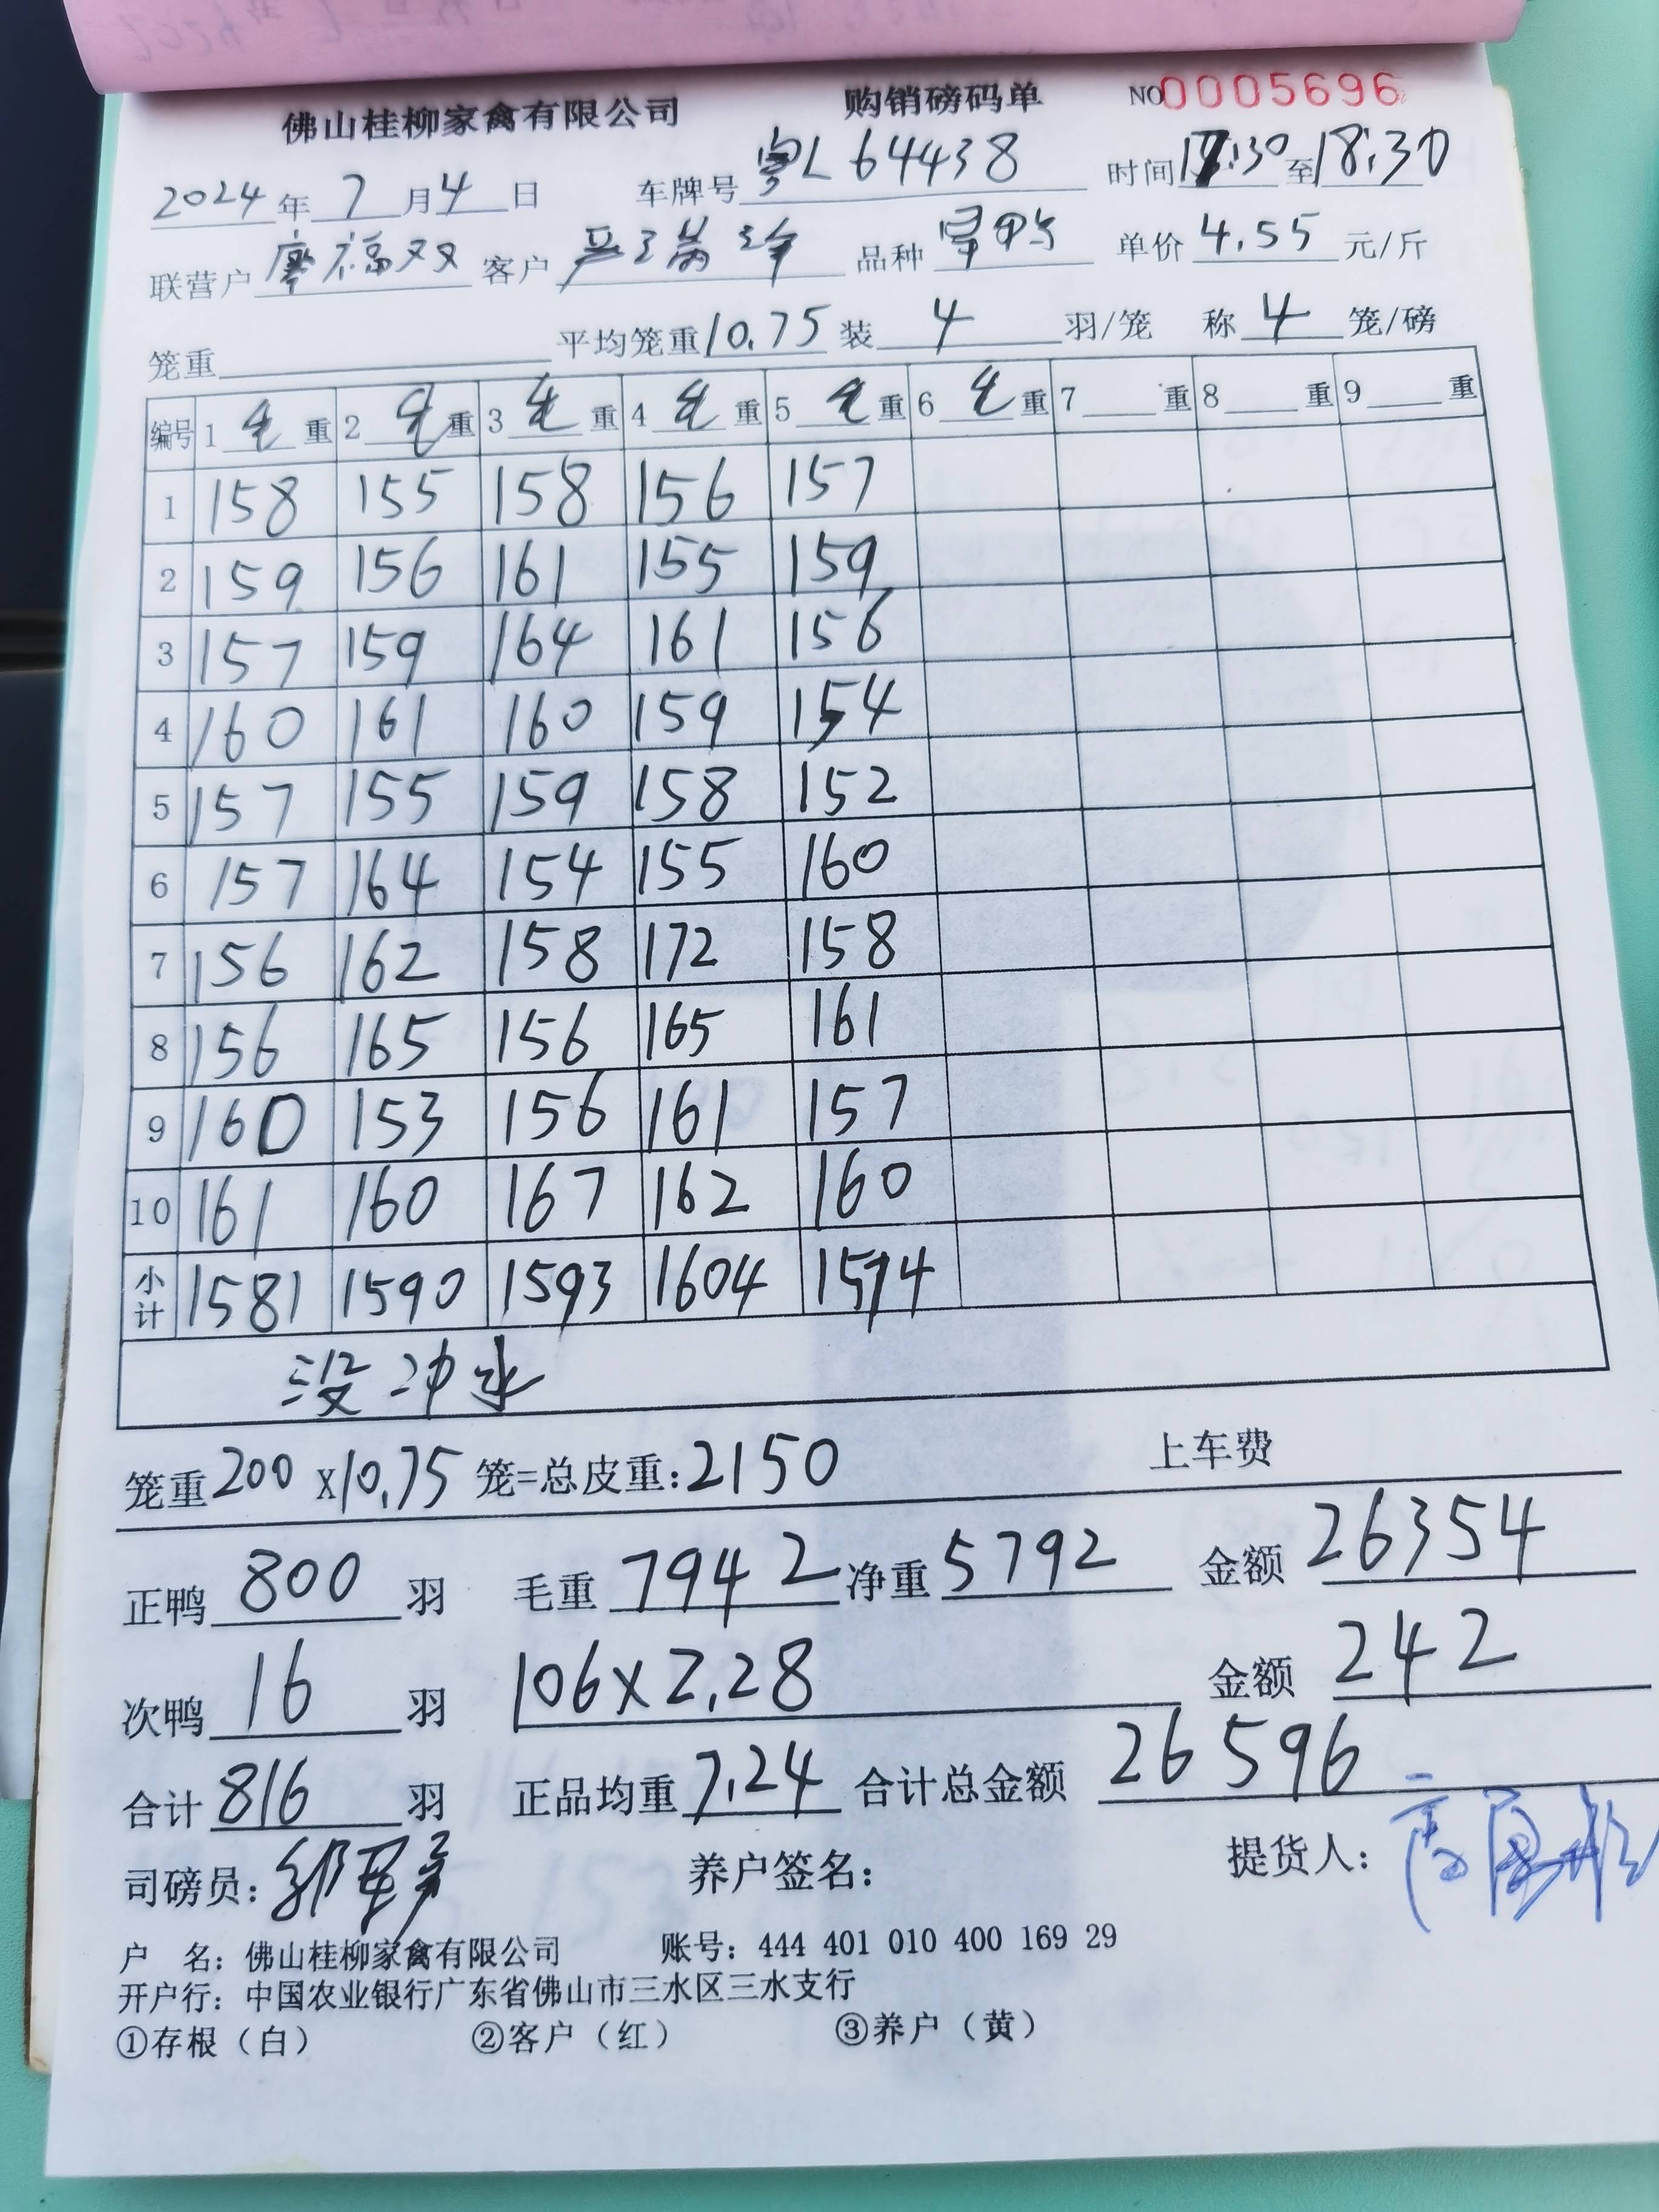 佛山桂柳家禽有限公司 购销磅码单 NO0005696
2024年7月4日 车牌号粤L64438 时间17:30至18:30
联营户廖福双 客户 品种 单价4.55元/斤
笼重 平均笼重10.75装4羽/笼 称4笼/磅
编号 1毛重 2毛重 3毛重 4毛重 5毛重 6毛重 7重 8重 9重
1 158 155 158 156 157
2 159 156 161 155 159
3 157 159 164 161 156
4 160 161 160 159 154
5 157 155 159 158 152
6 157 164 154 155 160
7 156 162 158 172 158
8 156 165 156 165 161
9 160 153 156 161 157
10 161 160 167 162 160
小计 1581 1590 1593 1604 1574
没冲水
笼重200x10.75笼=总皮重:2150 上车费
正鸭800羽 毛重7942净重5792 金额26354
次鸭16羽 106x2.28 金额242
合计816羽 正品均重7.24 合计总金额26596
司磅员: 养户签名: 提货人:
户 名: 佛山桂柳家禽有限公司 账号: 444 401 010 400 169 29
开户行: 中国农业银行广东省佛山市三水区三水支行
①存根(白) ②客户(红) ③养户(黄)